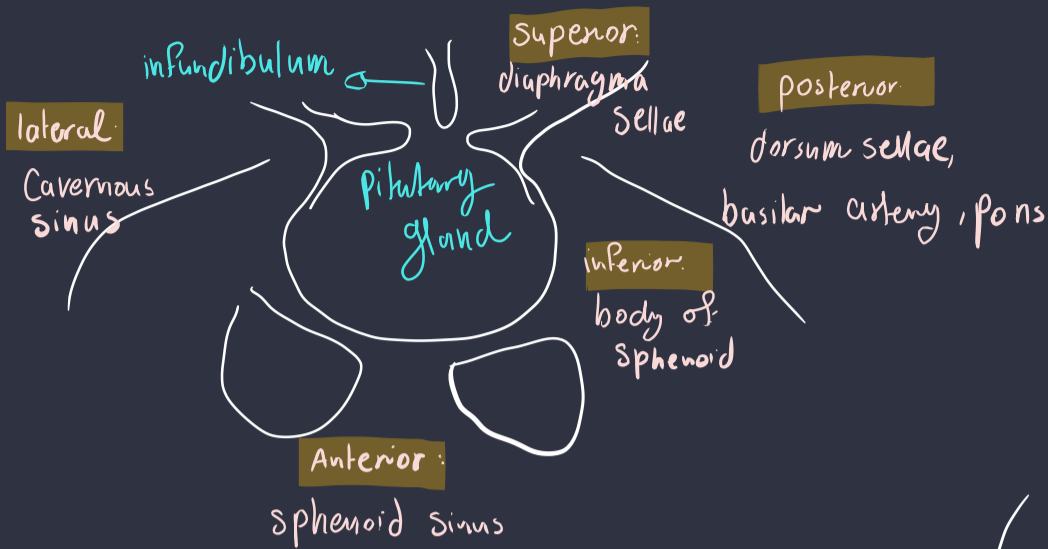 infundibulum
superior:
diaphragma
sellae
posterior
dorsum sellae,
basilar artery, pons
lateral:
Cavernous
sinus
Pitutary
gland
inferior:
body of
sphenoid
Anterior:
sphenoid sinus